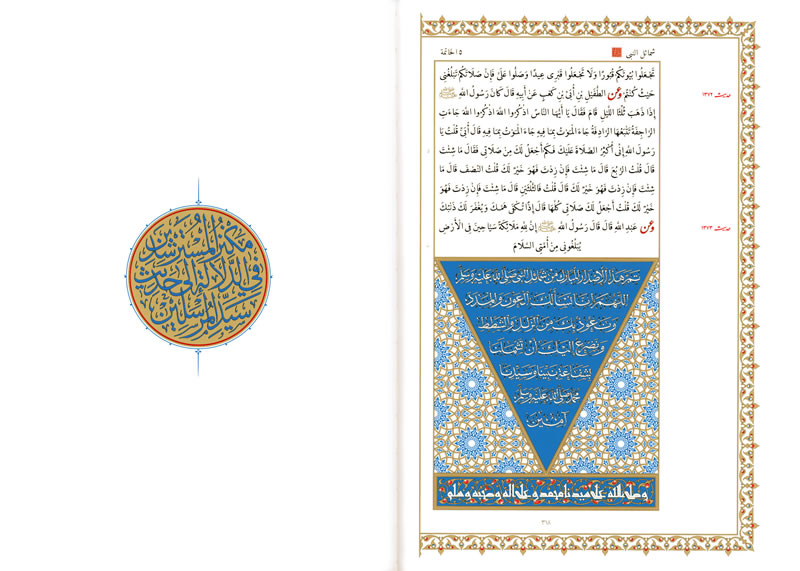 شمائل النبي
٥ الخاتمة
تَجْعَلُوا بُيُوتَكُمْ قُبُورًا وَلَا تَجْعَلُوا قَبْرِى عِيدًا وَصَلُّوا عَلَىَّ فَإِنَّ صَلَاتَكُمْ تَبْلُغُنِى
حَيْثُ كُنْتُمْ وَعَنِ الطُّفَيْلِ بْنِ أُبَىِّ بْنِ كَعْبٍ عَنْ أَبِيهِ قَالَ كَانَ رَسُولُ اللَّهِ ﷺ
حديث ١٣٧٢
إِذَا ذَهَبَ ثُلُثَا اللَّيْلِ قَامَ فَقَالَ يَا أَيُّهَا النَّاسُ اذْكُرُوا اللَّهَ اذْكُرُوا اللَّهَ جَاءَتِ
الرَّاجِفَةُ تَتْبَعُهَا الرَّادِفَةُ جَاءَ الْمَوْتُ بِمَا فِيهِ جَاءَ الْمَوْتُ بِمَا فِيهِ قَالَ أُبَىٌّ قُلْتُ يَا
رَسُولَ اللَّهِ إِنِّى أُكْثِرُ الصَّلَاةَ عَلَيْكَ فَكَمْ أَجْعَلُ لَكَ مِنْ صَلَاتِى فَقَالَ مَا شِئْتَ
قَالَ قُلْتُ الرُّبُعَ قَالَ مَا شِئْتَ فَإِنْ زِدْتَ فَهُوَ خَيْرٌ لَكَ قُلْتُ النِّصْفَ قَالَ مَا
شِئْتَ فَإِنْ زِدْتَ فَهُوَ خَيْرٌ لَكَ قَالَ قُلْتُ فَالثُّلُثَيْنِ قَالَ مَا شِئْتَ فَإِنْ زِدْتَ فَهُوَ
خَيْرٌ لَكَ قُلْتُ أَجْعَلُ لَكَ صَلَاتِى كُلَّهَا قَالَ إِذًا تُكْفَى هَمَّكَ وَيُغْفَرُ لَكَ ذَنْبُكَ
وَعَنْ عَبْدِ اللَّهِ قَالَ قَالَ رَسُولُ اللَّهِ ﷺ إِنَّ لِلَّهِ مَلَائِكَةً سَيَّاحِينَ فِى الْأَرْضِ
حديث ١٣٧٣
يُبَلِّغُونِى مِنْ أُمَّتِى السَّلَامَ
تم هذا الإصدار المبارك من شمائل النبي صلى الله عليه وسلم
اللهم إنا نسألك العون والمدد
ونعوذ بك من الزلل والشطط
ونضرع إليك أن تشملنا
بشفاعة نبينا وسيدنا
محمد صلى الله عليه وسلم
آمين
وصلى الله على سيدنا محمد وعلى آله وصحبه وسلم
٣١٨
مكنز المسترشدين
في الدلالة إلى حديث
سيد المرسلين